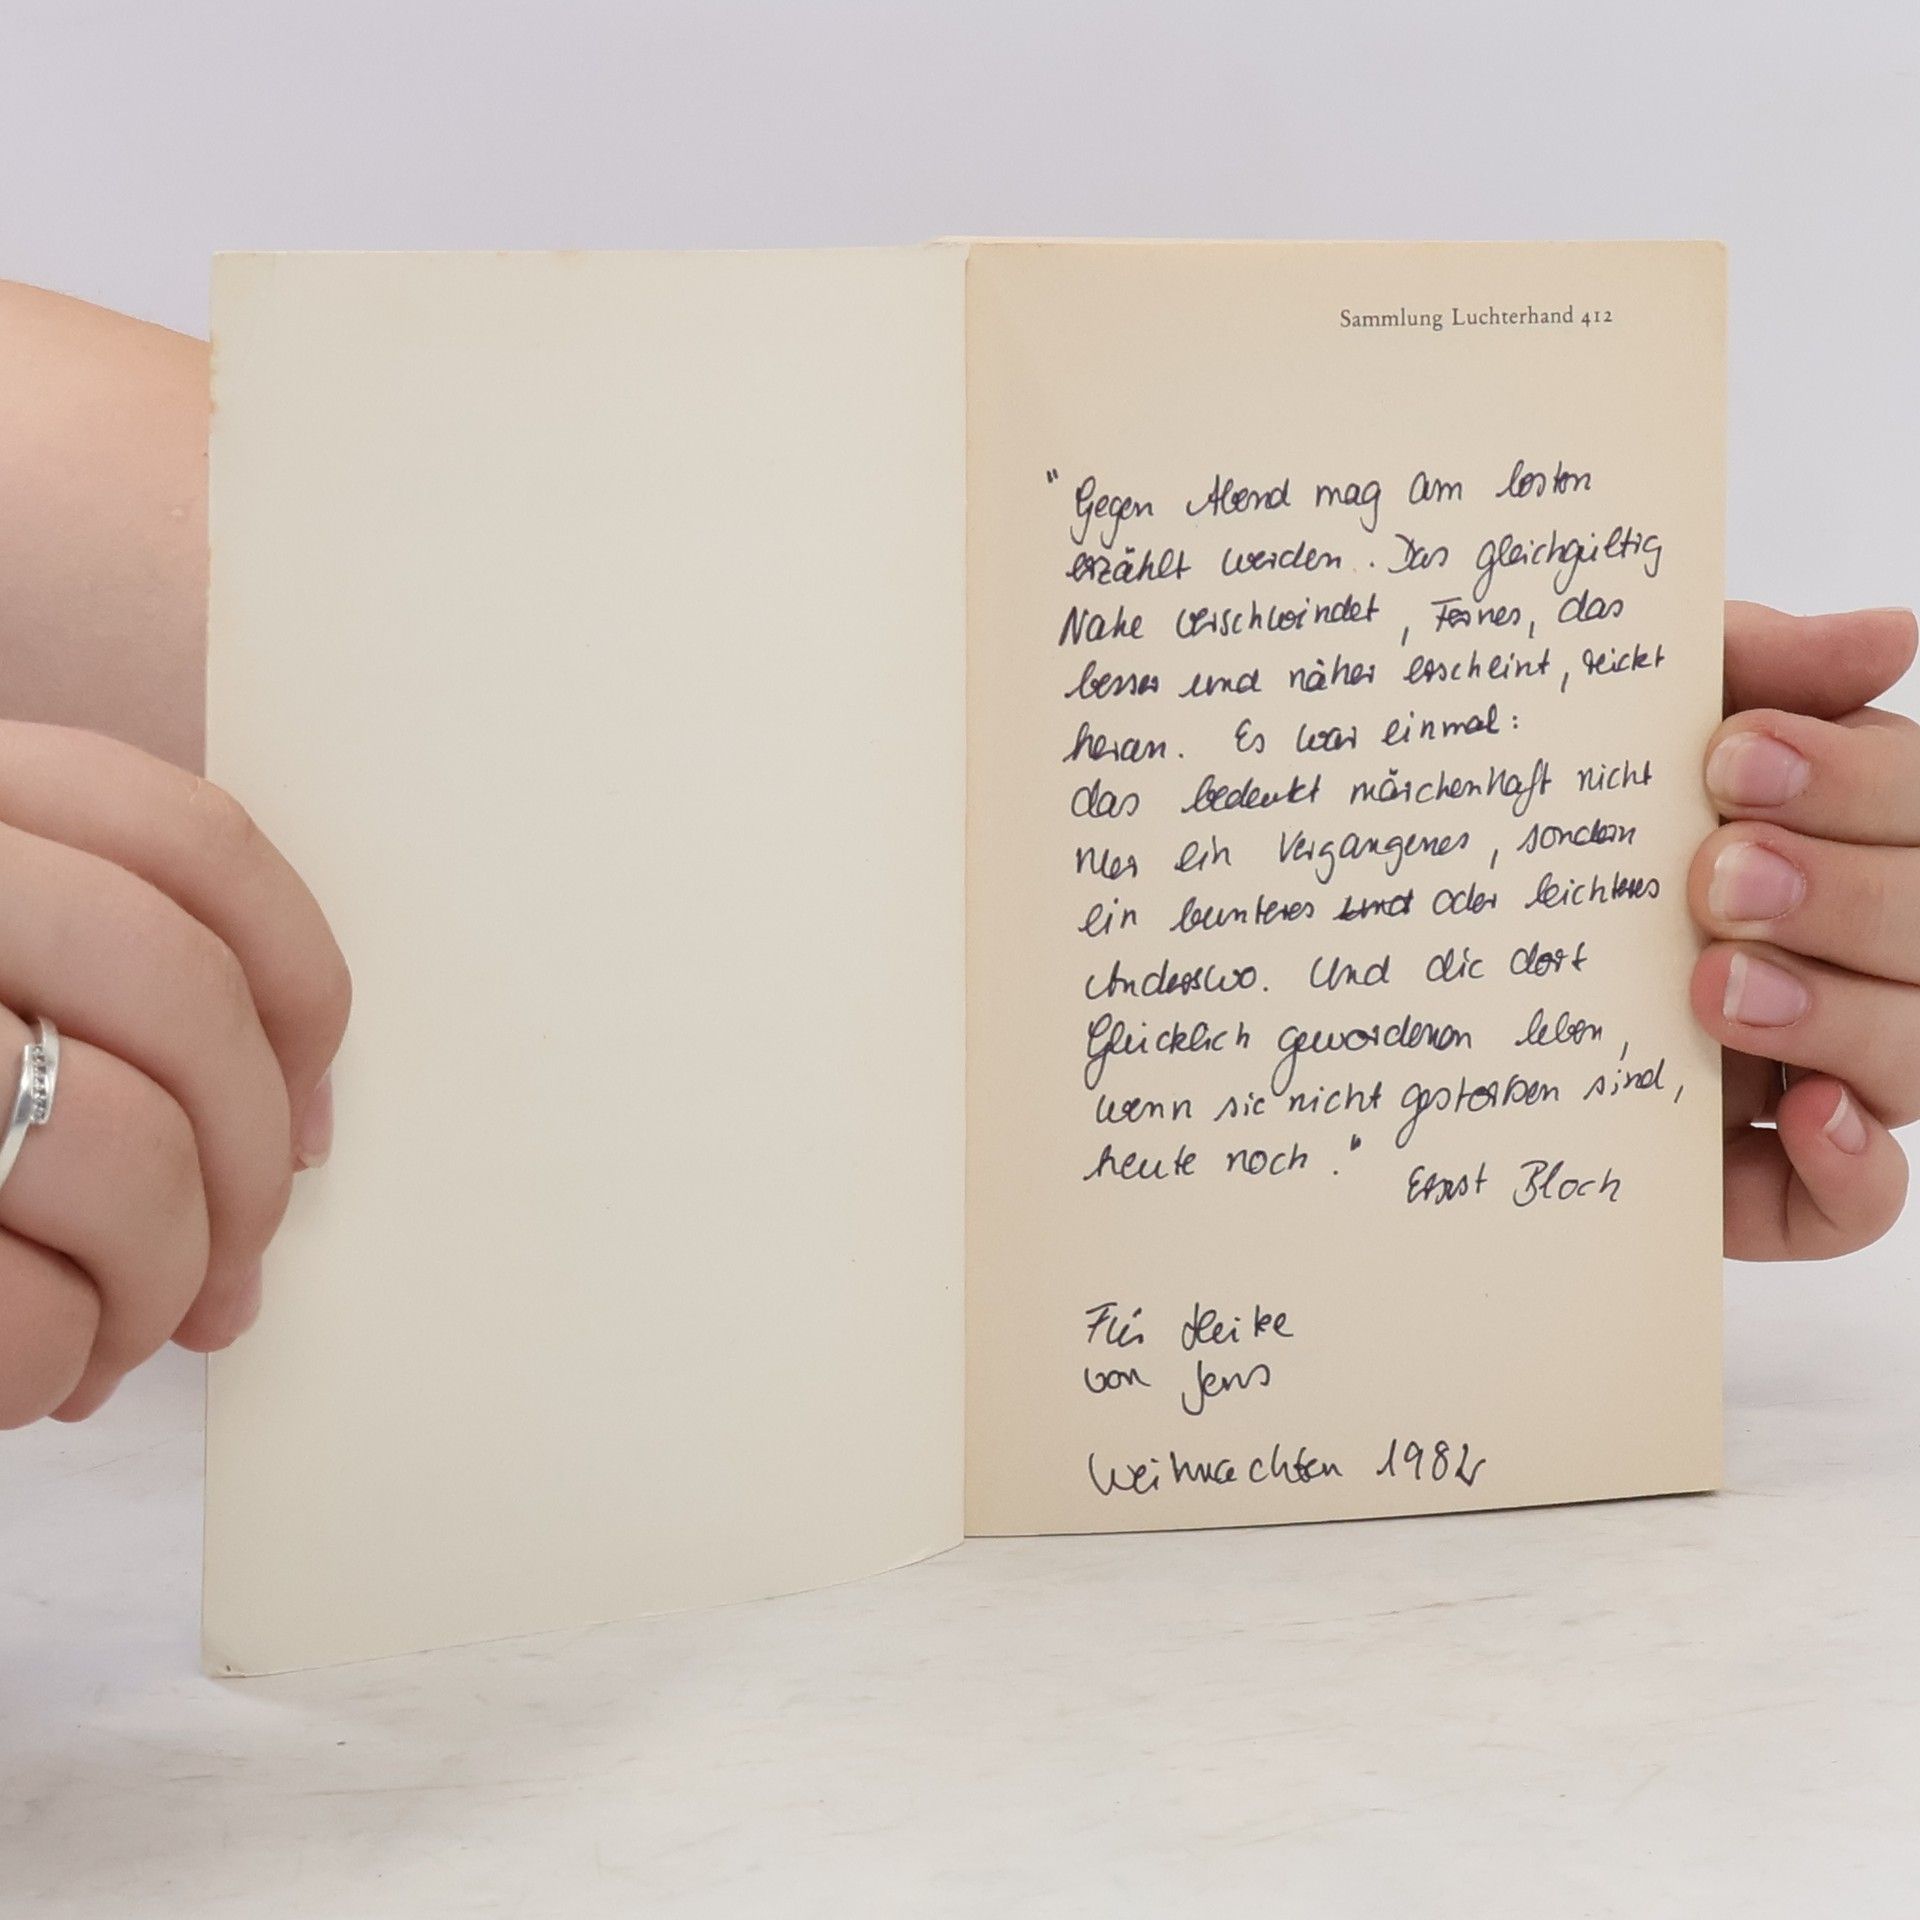 Sammlung Luchterhand 412
"Gegen Abend mag am besten
erzählt werden. Das gleichgültig
Nahe verschwindet, Fernes, das
besser und näher erscheint, rückt
heran. Es war einmal:
das bedeutet märchenhaft nicht
nur ein Vergangenes, sondern
ein bunteres und oder leichteres
Anderswo. Und die dort
Glücklich gewordenen leben,
wenn sie nicht gestorben sind,
heute noch."
Ernst Bloch
Für Heike
von Jens
Weihnachten 1982